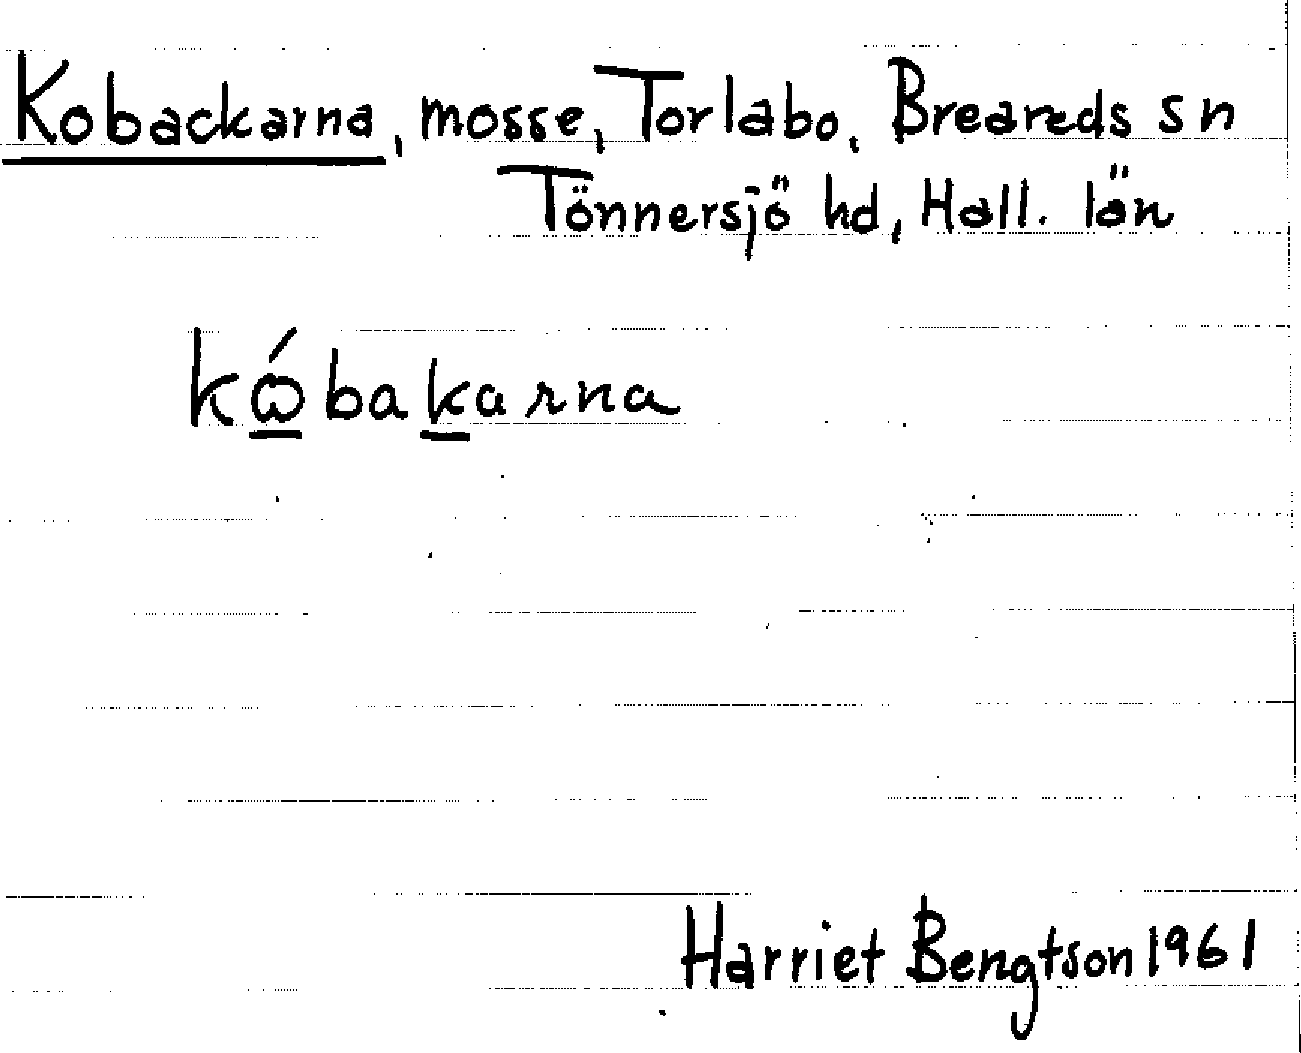 Kobackarna, mosse, Torlabo, Breareds sn
Tönnersjö hd, Hall. län
kώ̲bak̲arna
Harriet Bengtson 1961